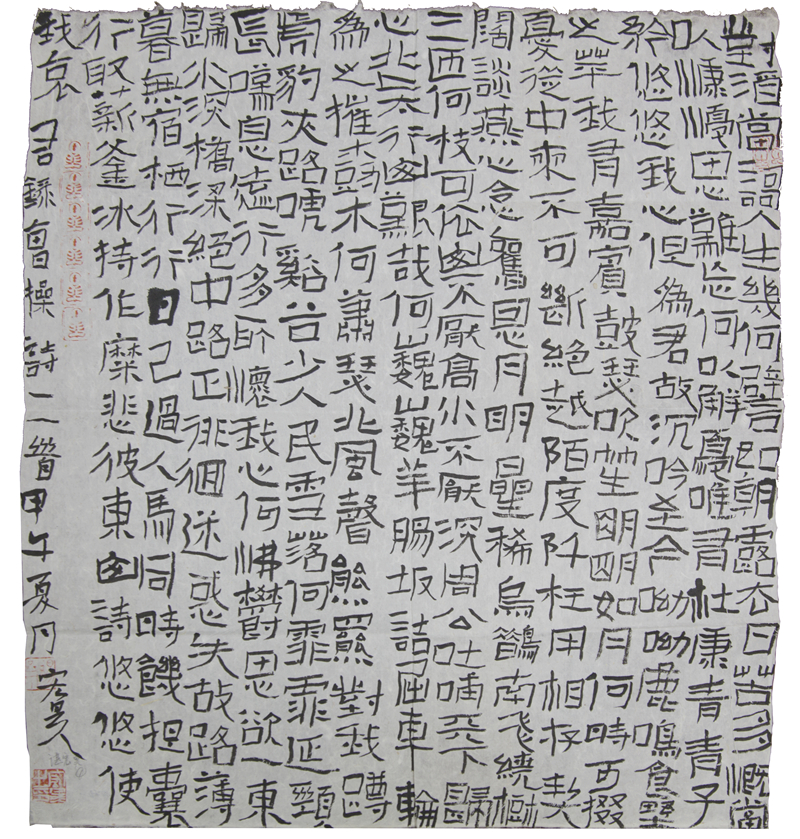 對酒當歌人生幾何譬如朝露去日苦多慨當
以慷憂思難忘何以解憂唯有杜康青青子
衿悠悠我心但為君故沉吟至今呦呦鹿鳴食野
之苹我有嘉賓鼓瑟吹笙明明如月何時可掇
憂從中來不可斷絕越陌度阡枉用相存契
闊談燕心念舊恩月明星稀烏鵲南飛繞樹
三匝何枝可依山不厭高水不厭深周公吐哺天下歸
心北上太行山艱哉何巍巍羊腸坂詰屈車輪
為之摧樹木何蕭瑟北風聲熊羆對我蹲
虎豹夾路啼谿谷少人民雪落何霏霏延頸
長嘆息遠行多所懷我心何怫鬱思欲一東
歸水深橋梁絕中路正徘徊迷惑失故路薄
暮無宿栖行行日已過人馬同時饑担囊
行取薪釜冰持作糜悲彼東山詩悠悠使
我哀 右錄曹操詩二首甲午夏月